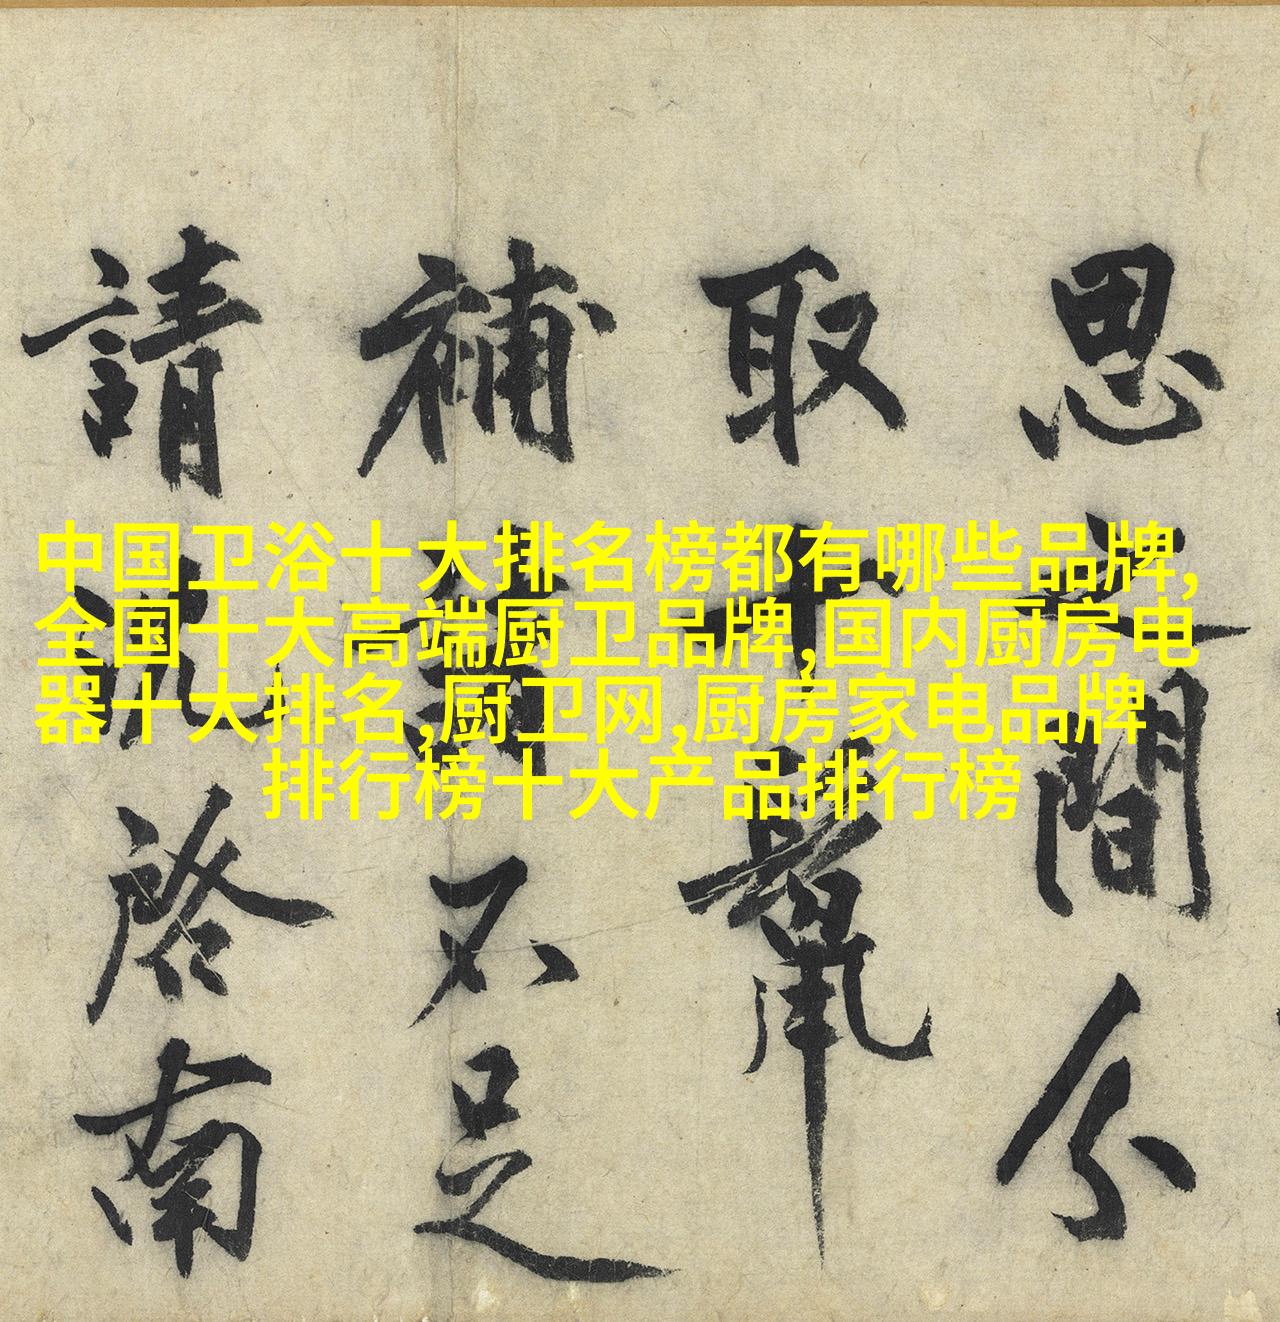 中国卫浴十大排名榜都有哪些品牌,
全国十大高端厨卫品牌,国内厨房电
器十大排名,厨卫网,厨房家电品牌
排行榜十大产品排行榜
思之間分
取十鬣
補諸不足
請沈啓南